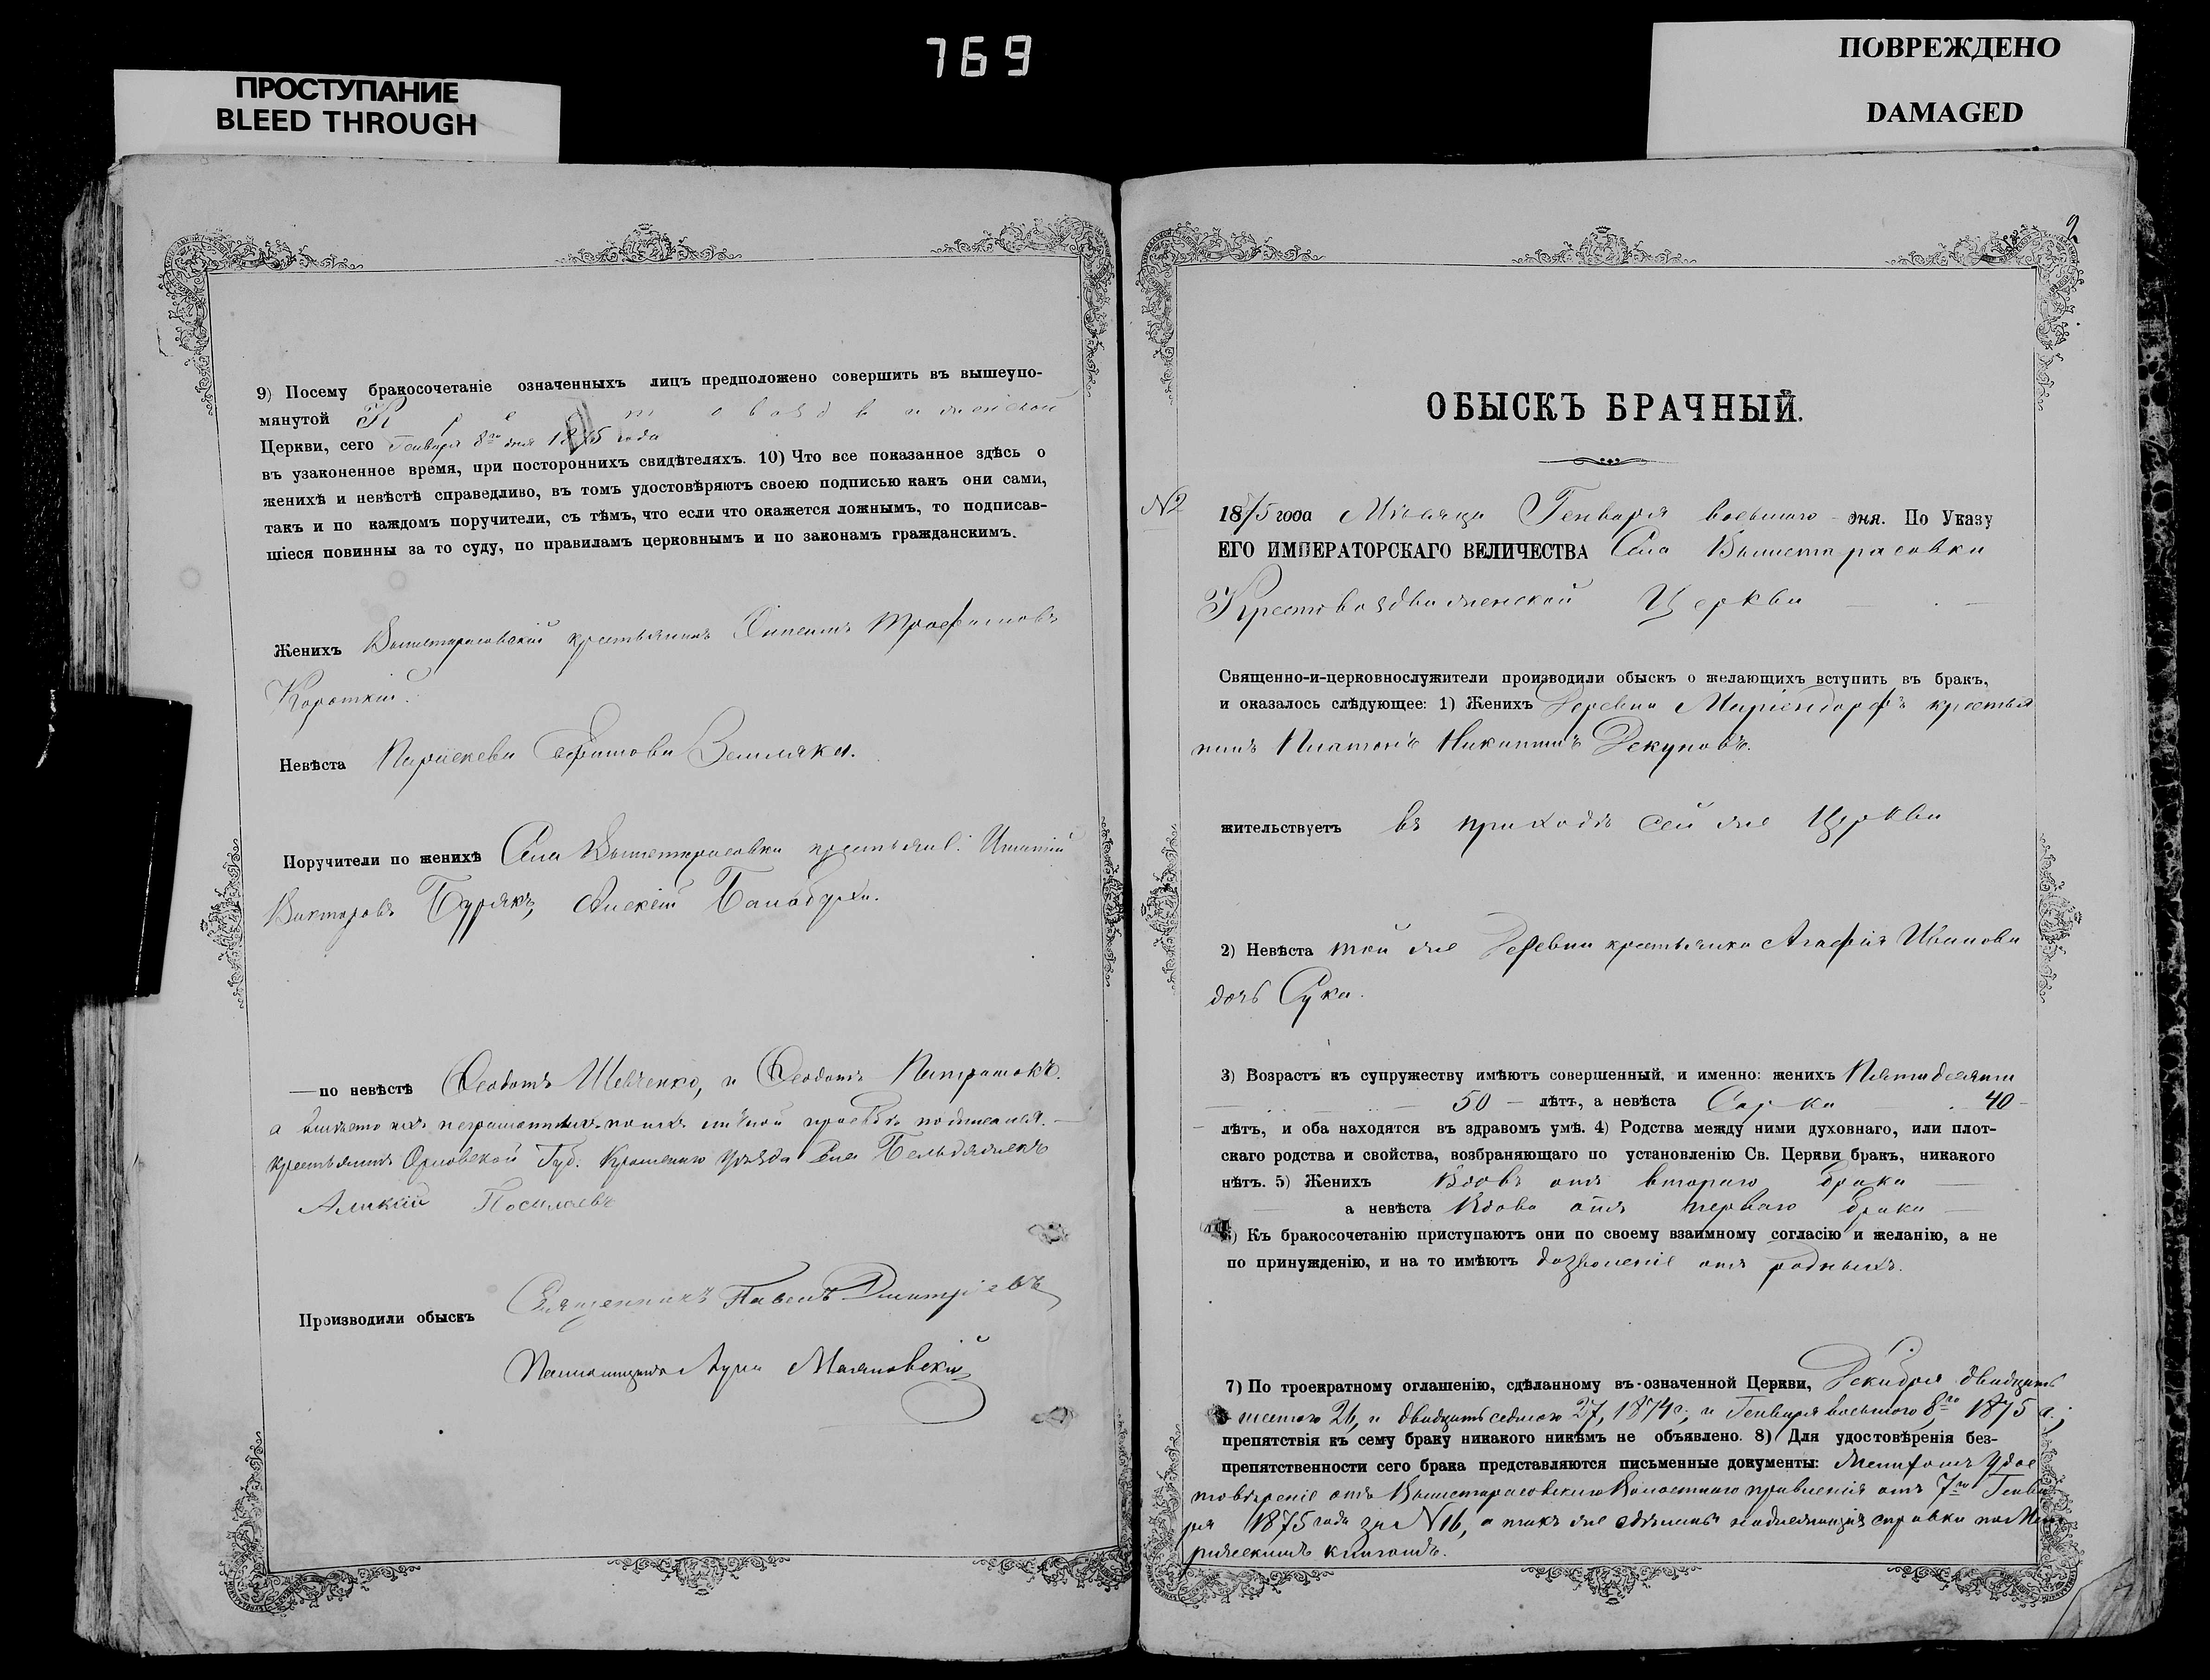 769
ПРОСТУПАНИЕ
BLEED THROUGH
ПОВРЕЖДЕНО
DAMAGED
9) Посему бракосочетаніе означенныхъ лицъ предположено совершить въ вышеупо-
мянутой Крестовоздвиженской
Церкви, сего Генваря 8го дня 1875 года
въ узаконенное время, при постороннихъ свидѣтеляхъ. 10) Что все показанное здѣсь о
женихѣ и невѣстѣ справедливо, въ томъ удостовѣряютъ своею подписью какъ они сами,
такъ и по каждомъ поручители, съ тѣмъ, что если что окажется ложнымъ, то подписав-
шіеся повинны за то суду, по правиламъ церковнымъ и по законамъ гражданскимъ.
Женихъ Вышетарасовскій крестьянинъ Трофимовъ
Короткій.
Невѣста Параскева Земляка.
Поручители по женихѣ Села Вышетарасовки крестьяне: Игнатій
Викторовъ Бурякъ, Алексѣй
—по невѣстѣ Феодотъ Шевченко, и Феодотъ
а вмѣсто ихъ неграмотныхъ по ихъ личной прозьбѣ подписался
крестьянинъ Орловской Губ. Кромскаго Уѣзда Села
Производили обыскъ Священникъ Павелъ Дмитріевъ
Маляновскій
2
ОБЫСКЪ БРАЧНЫЙ.
№2
1875 года Мѣсяца Генваря восьмаго дня. По Указу
ЕГО ИМПЕРАТОРСКАГО ВЕЛИЧЕСТВА Села Вышетарасовки
Крестовоздвиженской Церкви
Священно-и-церковнослужители производили обыскъ о желающихъ вступить въ бракъ,
и оказалось слѣдующее: 1) Женихъ Деревни Маріендорфъ крестья
нинъ Платонъ Никитинъ Декуновъ.
жительствуетъ въ приходѣ сей же Церкви
2) Невѣста той же Деревни крестьянка Агафія Иванова
дочь Сука.
3) Возрастъ къ супружеству имѣютъ совершенный, и именно: женихъ Пятидесяти
50 — лѣтъ, а невѣста Сорока 40
лѣтъ, и оба находятся въ здравомъ умѣ. 4) Родства между ними духовнаго, или плот-
скаго родства и свойства, возбраняющаго по установленію Св. Церкви бракъ, никакого
нѣтъ. 5) Женихъ Вдовъ отъ втораго брака
а невѣста Вдова отъ перваго брака
6) Къ бракосочетанію приступаютъ они по своему взаимному согласію и желанію, а не
по принужденію, и на то имѣютъ дозволеніе отъ родныхъ.
7) По троекратному оглашенію, сдѣланному въ означенной Церкви, Декабря двадцать
шестаго 26, и двадцать седмаго 27, 1874 г., и Генваря восьмаго 8го 1875 г.;
препятствія къ сему браку никакого никѣмъ не объявлено. 8) Для удостовѣренія без-
препятственности сего брака представляются письменные документы: Женихомъ Удос
товѣреніе отъ Вышетарасовскаго Волостнаго правленія отъ 7го Генва
ря 1875 года за №16, а такъ же сдѣланы надлежащія справки по Мет
рическимъ книгамъ.